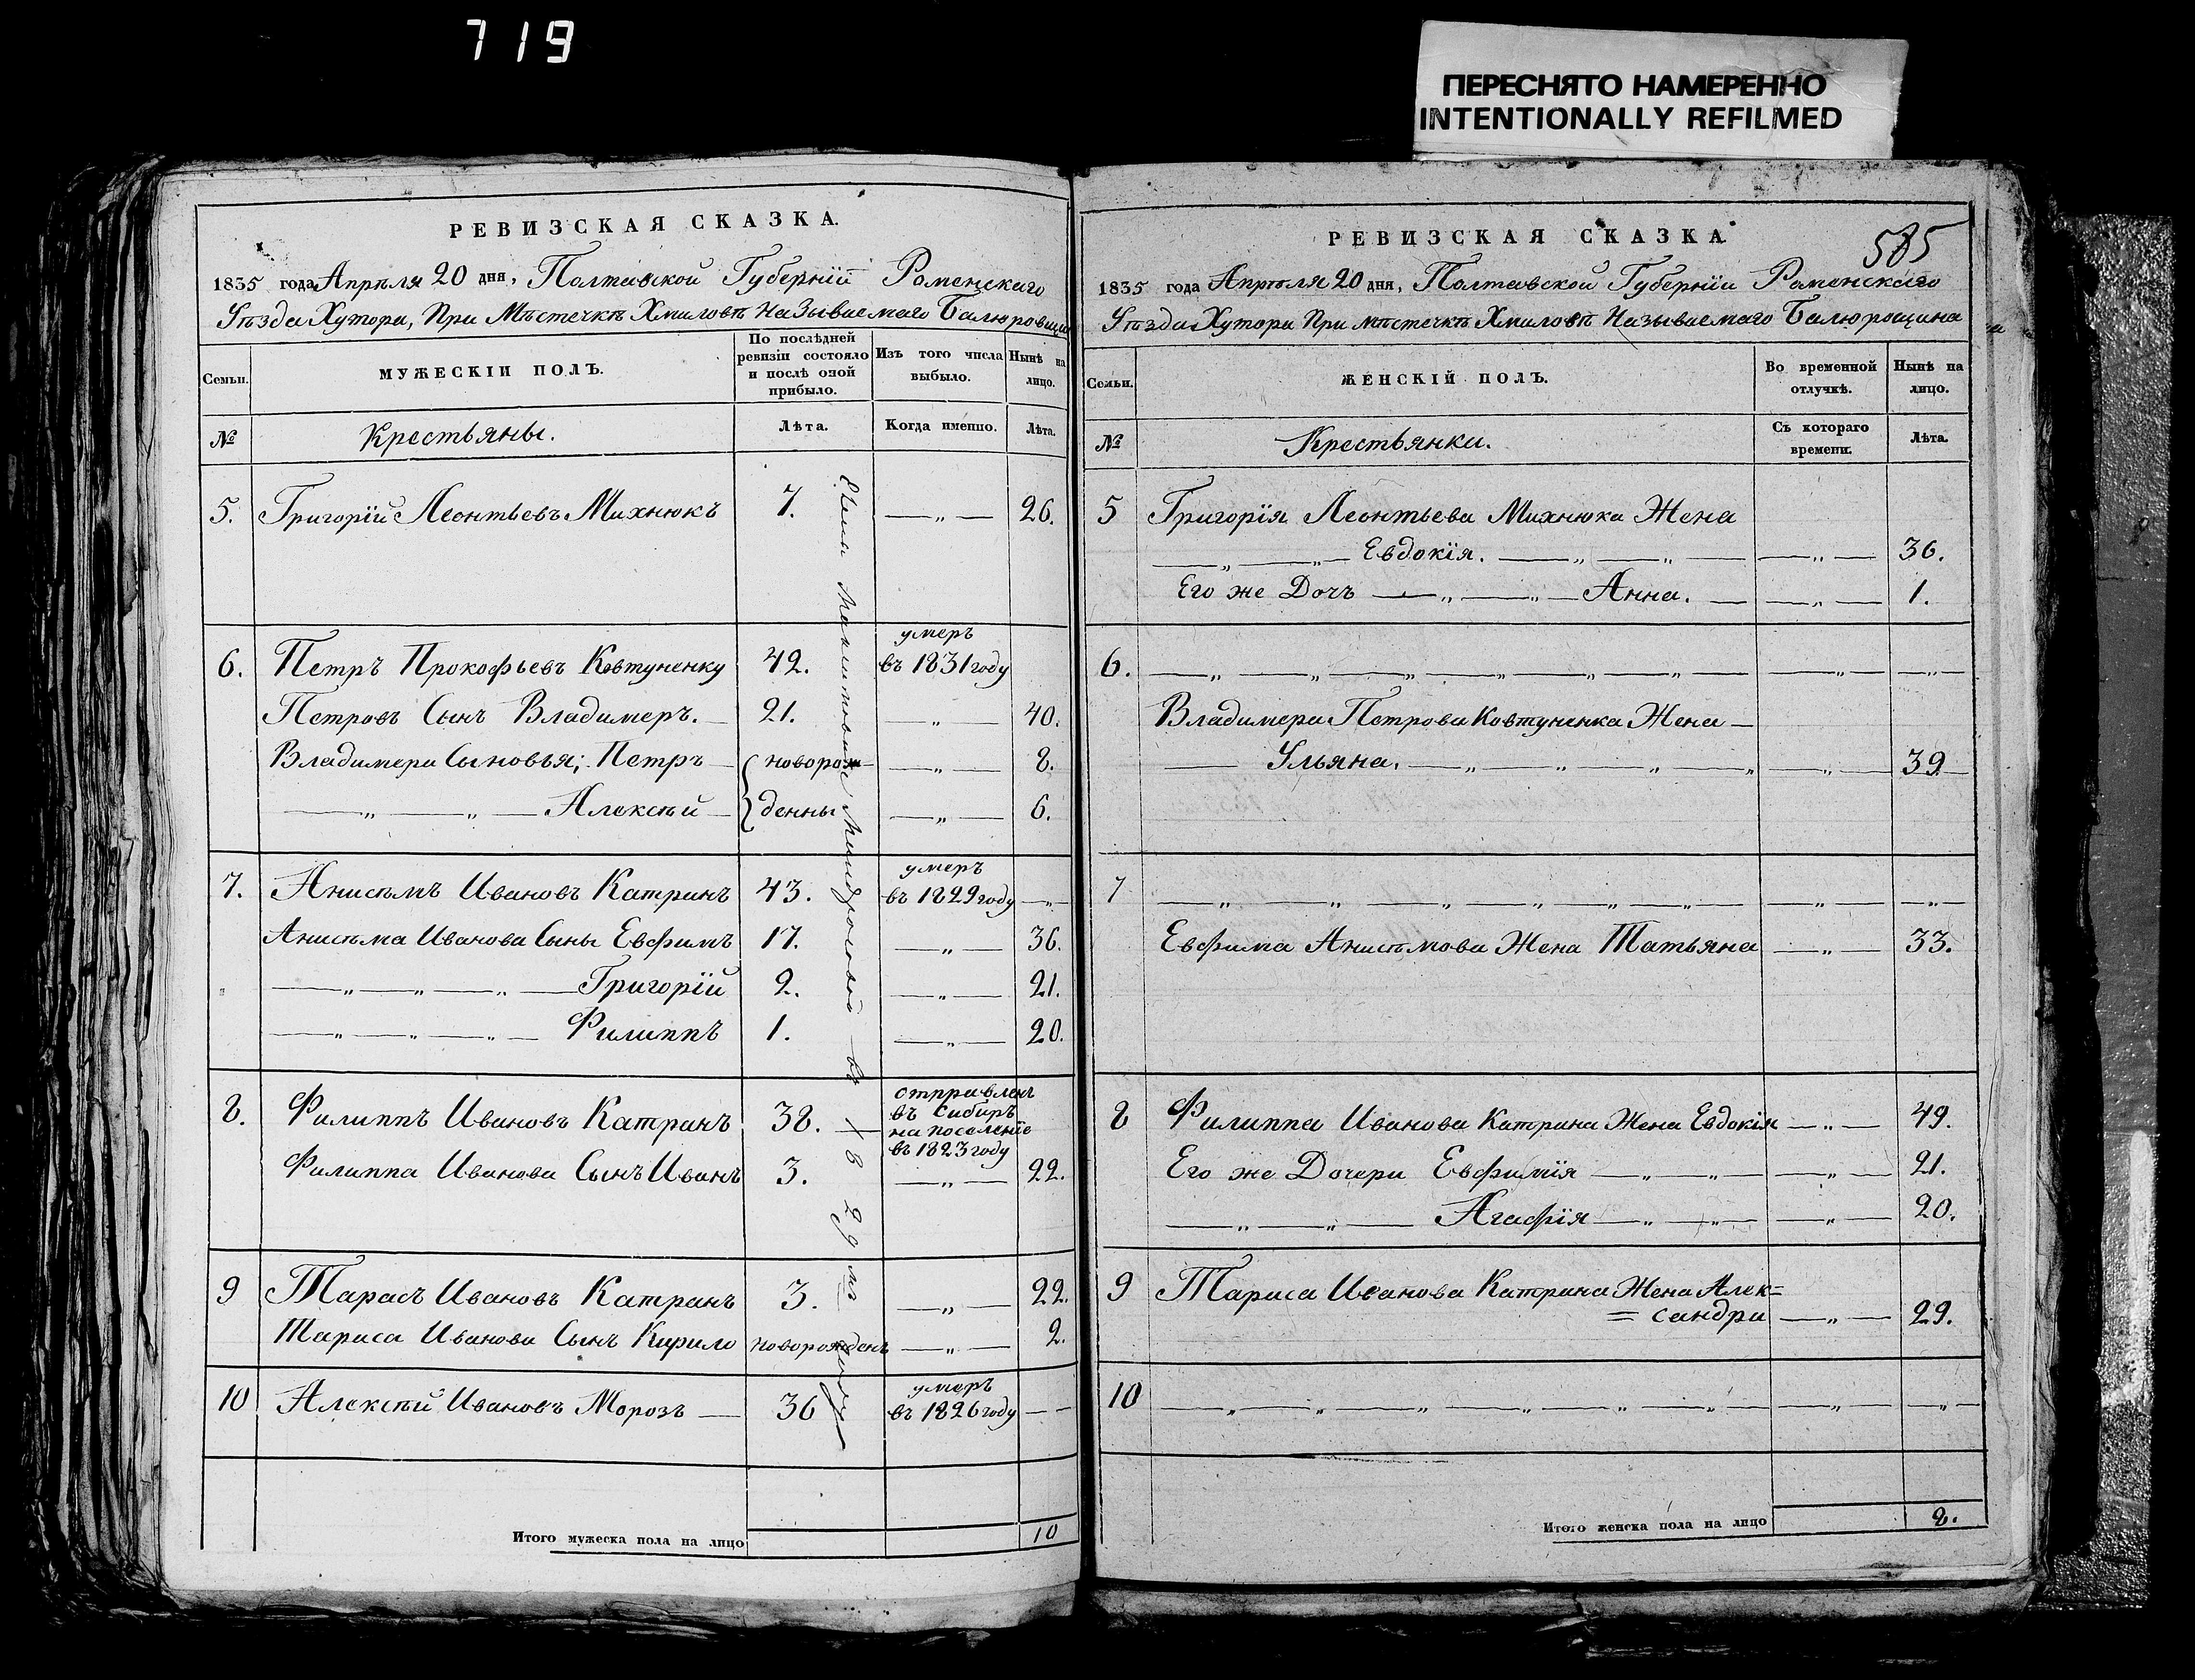 719
ПЕРЕСНЯТО НАМЕРЕННО
INTENTIONALLY REFILMED
РЕВИЗСКАЯ СКАЗКА.
1835 года Апрѣля 20 дня, Полтавской Губерніи Роменскаго
Уѣзда Хутора, При Мѣстечкѣ Хмиловѣ Называемаго
Семьи.
МУЖЕСКІЙ ПОЛЪ.
По послѣдней ревизіи состояло и послѣ оной прибыло.
Изъ того числа выбыло.
Нынѣ на лицо.
№
Крестьяны.
Лѣта.
Когда именно.
Лѣта.
5. Григорій Леонтьевъ Михнюкъ 7. —„— 26.
6. Петръ Прокофьевъ Ковтуненку 42. умеръ въ 1831 году
Петровъ Сынъ Владимеръ. — 21. —„— 40.
Владимера Сыновья; Петръ — новорож= —„— 8.
—„—„— Алексѣй — денны —„— 6.
7. Анисѣмъ Ивановъ Катранъ 43. умеръ въ 1829 году —„—
Анисѣма Иванова Сыны Евфимъ 17. —„— 36.
—„—„—„— Григорій 2. —„— 21.
—„—„—„— Филиппъ 1. —„— 20.
8. Филиппъ Ивановъ Катранъ 38. отправленъ въ Сибиръ на поселеніе въ 1823 году
Филиппа Иванова Сынъ Иванъ 3. —„— 22.
9 Тарасъ Ивановъ Катранъ 3. —„— 22.
Тараса Иванова Сынъ Кирило новорожденъ —„— 2.
10 Алексѣй Ивановъ Морозъ — 36 умеръ въ 1826 году — —
Итого мужеска пола на лицо 10
РЕВИЗСКАЯ СКАЗКА.
585
1835 года Апрѣля 20 дня, Полтавской Губерніи Роменскаго
Уѣзда Хутора При мѣстечкѣ Хмиловѣ Называемаго Балюрощина
Семьи.
ЖЕНСКІЙ ПОЛЪ.
Во временной отлучкѣ.
Нынѣ на лицо.
№
Крестьянки.
Съ котораго времени.
Лѣта.
5 Григорія Леонтьева Михнюка Жена
—„—„— Евдокія. —„—„— —„— 36.
Его же Дочъ —„—„— Анна. — —„— 1.
6. —„—„—„—„—„—„— —„— —„—
Владимера Петрова Ковтуненка Жена —
— Ульяна. —„—„—„—„ —„— 39
7 —„—„—„—„—„—„— —„— —„—
Евфима Анисѣмова Жена Татьяна —„— 33.
8 Филиппа Иванова Катрана Жена Евдокія —„— 49.
Его же Дочери Евфимія —„—„— —„— 21.
—„—„— Агафія —„—„— —„— 20.
9 Тараса Иванова Катрана Жена Алек=
= сандра —„— 29.
10 —„—„—„—„—„—„— —„— —„—
Итого женска пола на лицо 8.